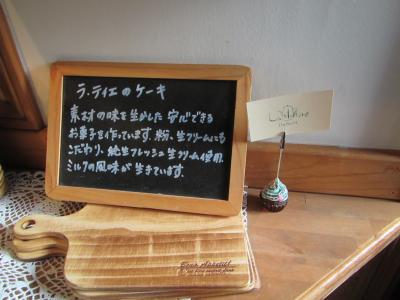 ラ・ティエのケーキ
素材の味を生かした安心できる
お菓子を作っています。粉、生クリームにも
こだわり、純生フレッシュ生クリーム使用。
ミルクの風味が生きています。
Bon Appetit!